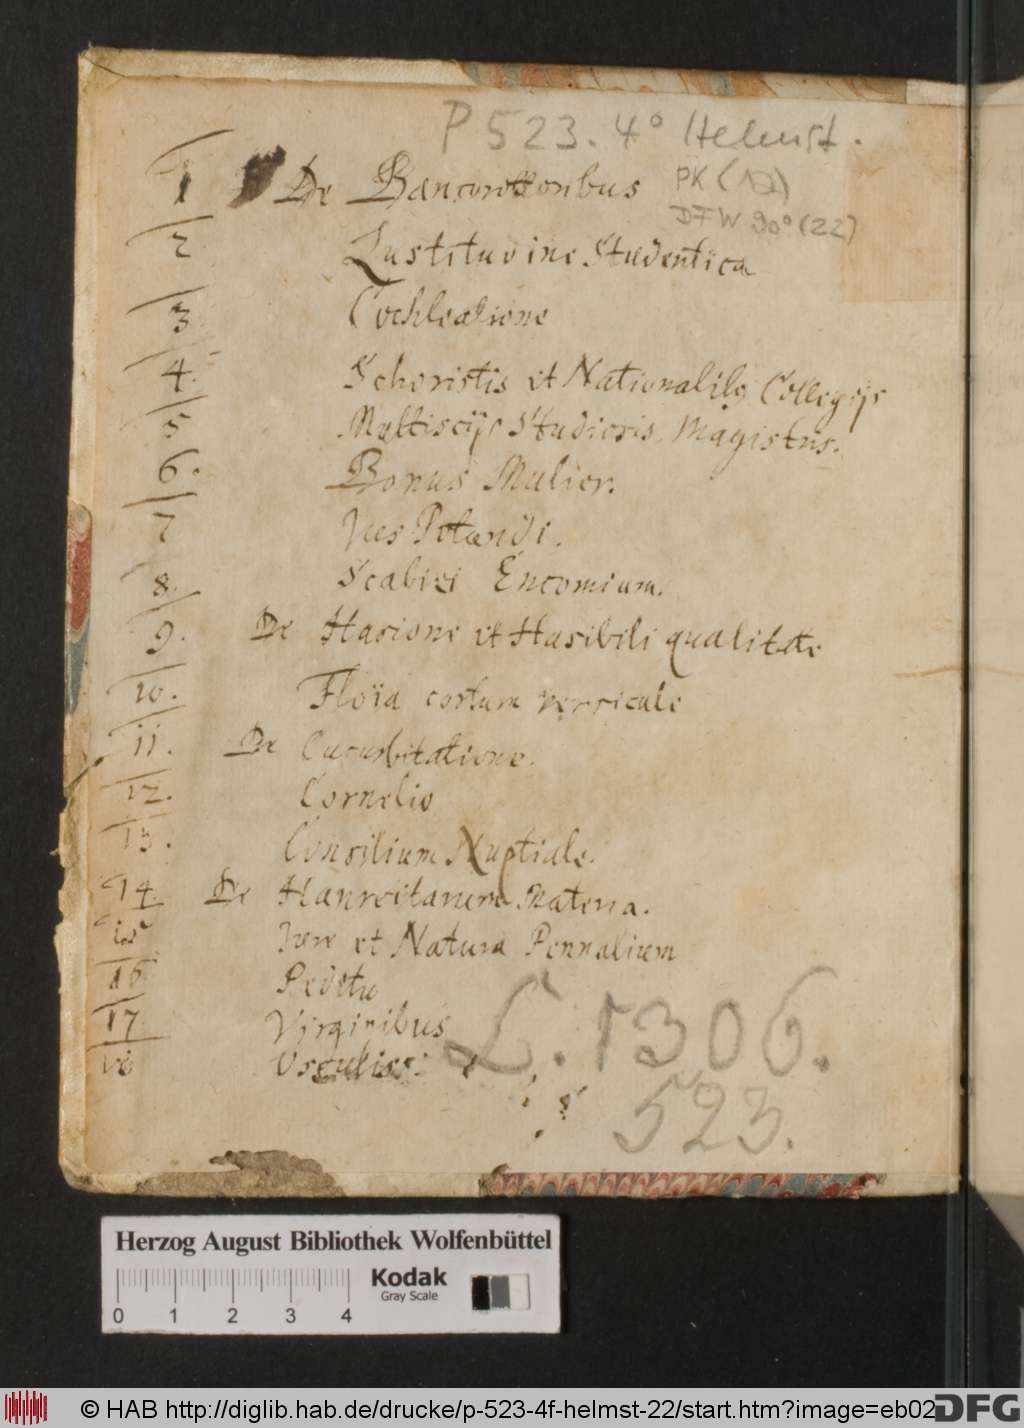 P 523. 4° Helmst.
1 De Bancorottoribus
PK
DFW 90° (22)
2 Lustitudine Studentica
3 Cochleatione
4. Schoristis et Nationalib9 Collegijs
5 Multiscijs Studiosis Magistris.
6. Bonus Mulier.
7 Jus Potandi.
8. Scabiei Encomium.
9. De Hasione et Hasibili qualitate
10. Floïa cortum versicale
11. De Cucurbitatione.
12. Cornelio
13. Consilium Nuptiale.
14. De Hanreitarum Materia.
15 Jure et Natura Pennalium
16 Peditu
17 Virginibus
18 Osculis
L. 1306.
523.
Herzog August Bibliothek Wolfenbüttel
Kodak
Gray Scale
0 1 2 3 4
© HAB http://diglib.hab.de/drucke/p-523-4f-helmst-22/start.htm?image=eb02
DFG